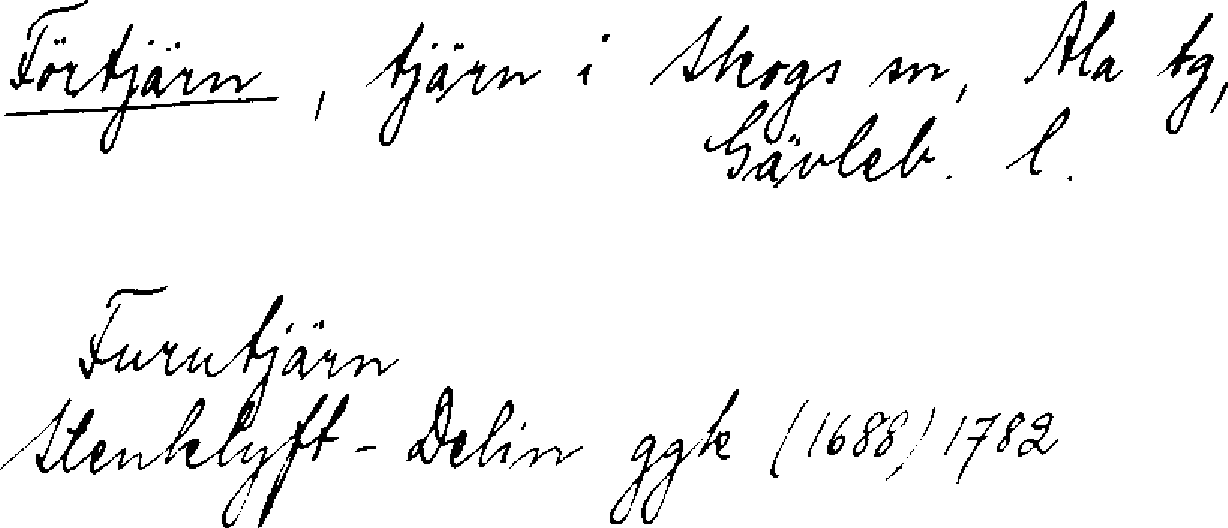 Förtjärn, tjärn i Skogs sn, Ala tg,
Gävleb. l.
Furutjärn
Stenklyft - Delin ggk (1688) 1782